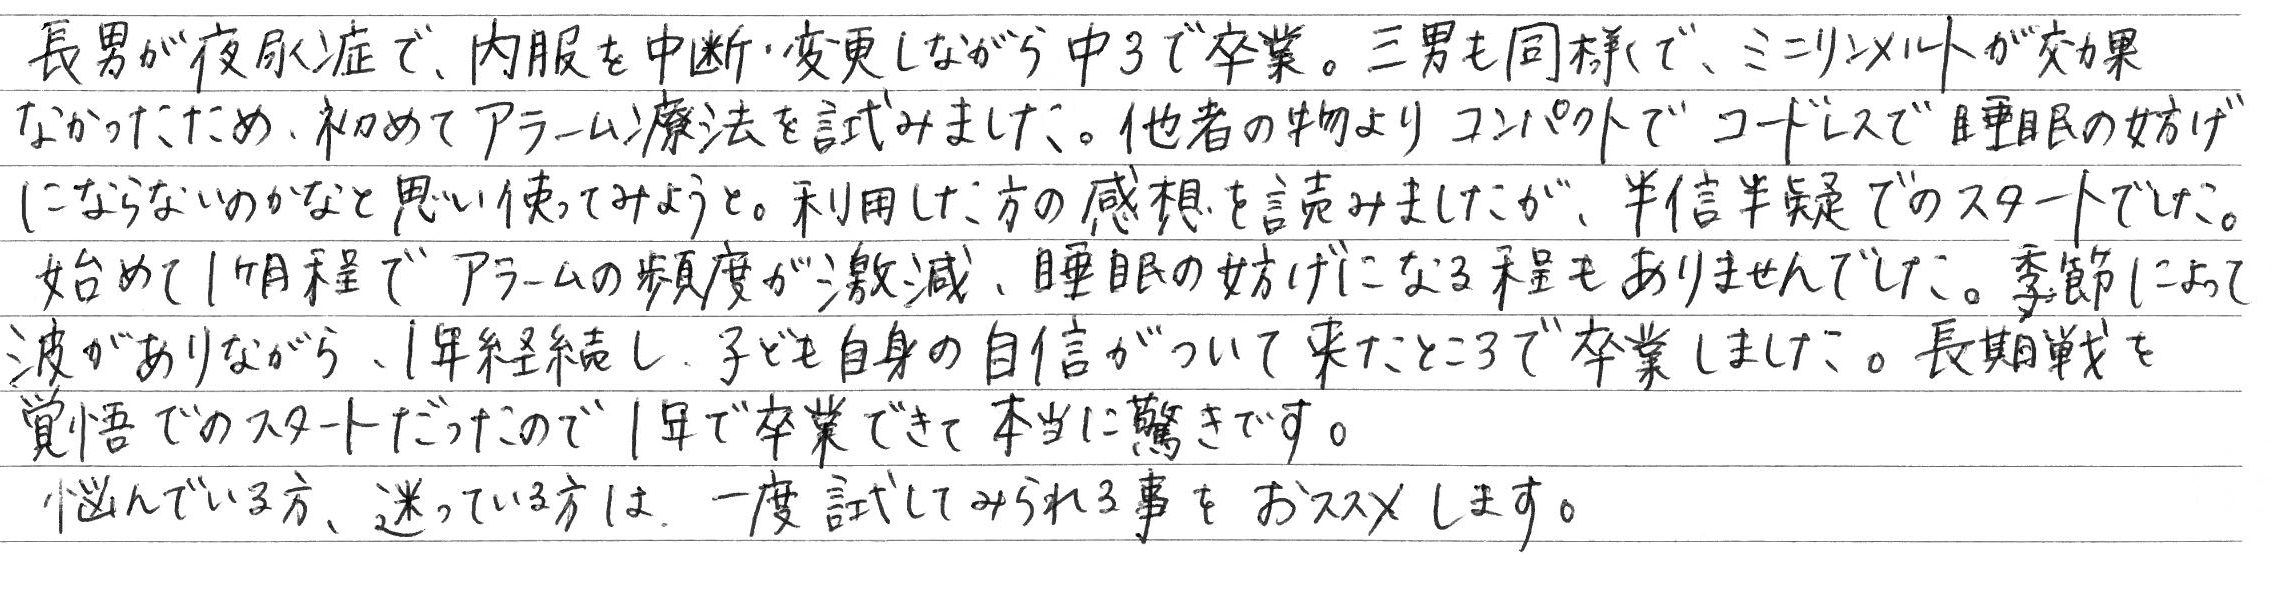 長男が夜尿症で、内服を中断・変更しながら中3で卒業。三男も同様で、ミニリンメルトが効果
なかったため、初めてアラーム療法を試みました。他者の物よりコンパクトでコードレスで睡眠の妨げ
にならないのかなと思い使ってみようと。利用した方の感想を読みましたが、半信半疑でのスタートでした。
始めて1ヶ月程でアラームの頻度が激減、睡眠の妨げになる程もありませんでした。季節によって
波がありながら、1年経続し、子ども自身の自信がついて来たところで卒業しました。長期戦を
覚悟でのスタートだったので1年で卒業できて本当に驚きです。
悩んでいる方、迷っている方は、一度試してみられる事をおススメします。